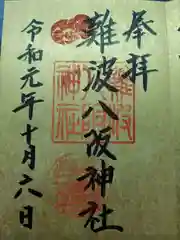 奉拝
難波八阪神社
令和元年十月六日
難波
八阪
神社